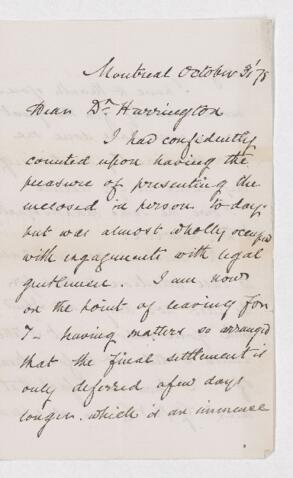 Montreal October 31/78
Dear Dr. Harrington
I had confidently
counted upon having the
pleasure of presenting the
inclosed in person to day-
but was almost wholly occupied
with engagements with legal
gentlemen. I am now
on the point of leaving for
T- having matters so arranged
that the final settlement is
only deferred a few days
longer. which is an immense